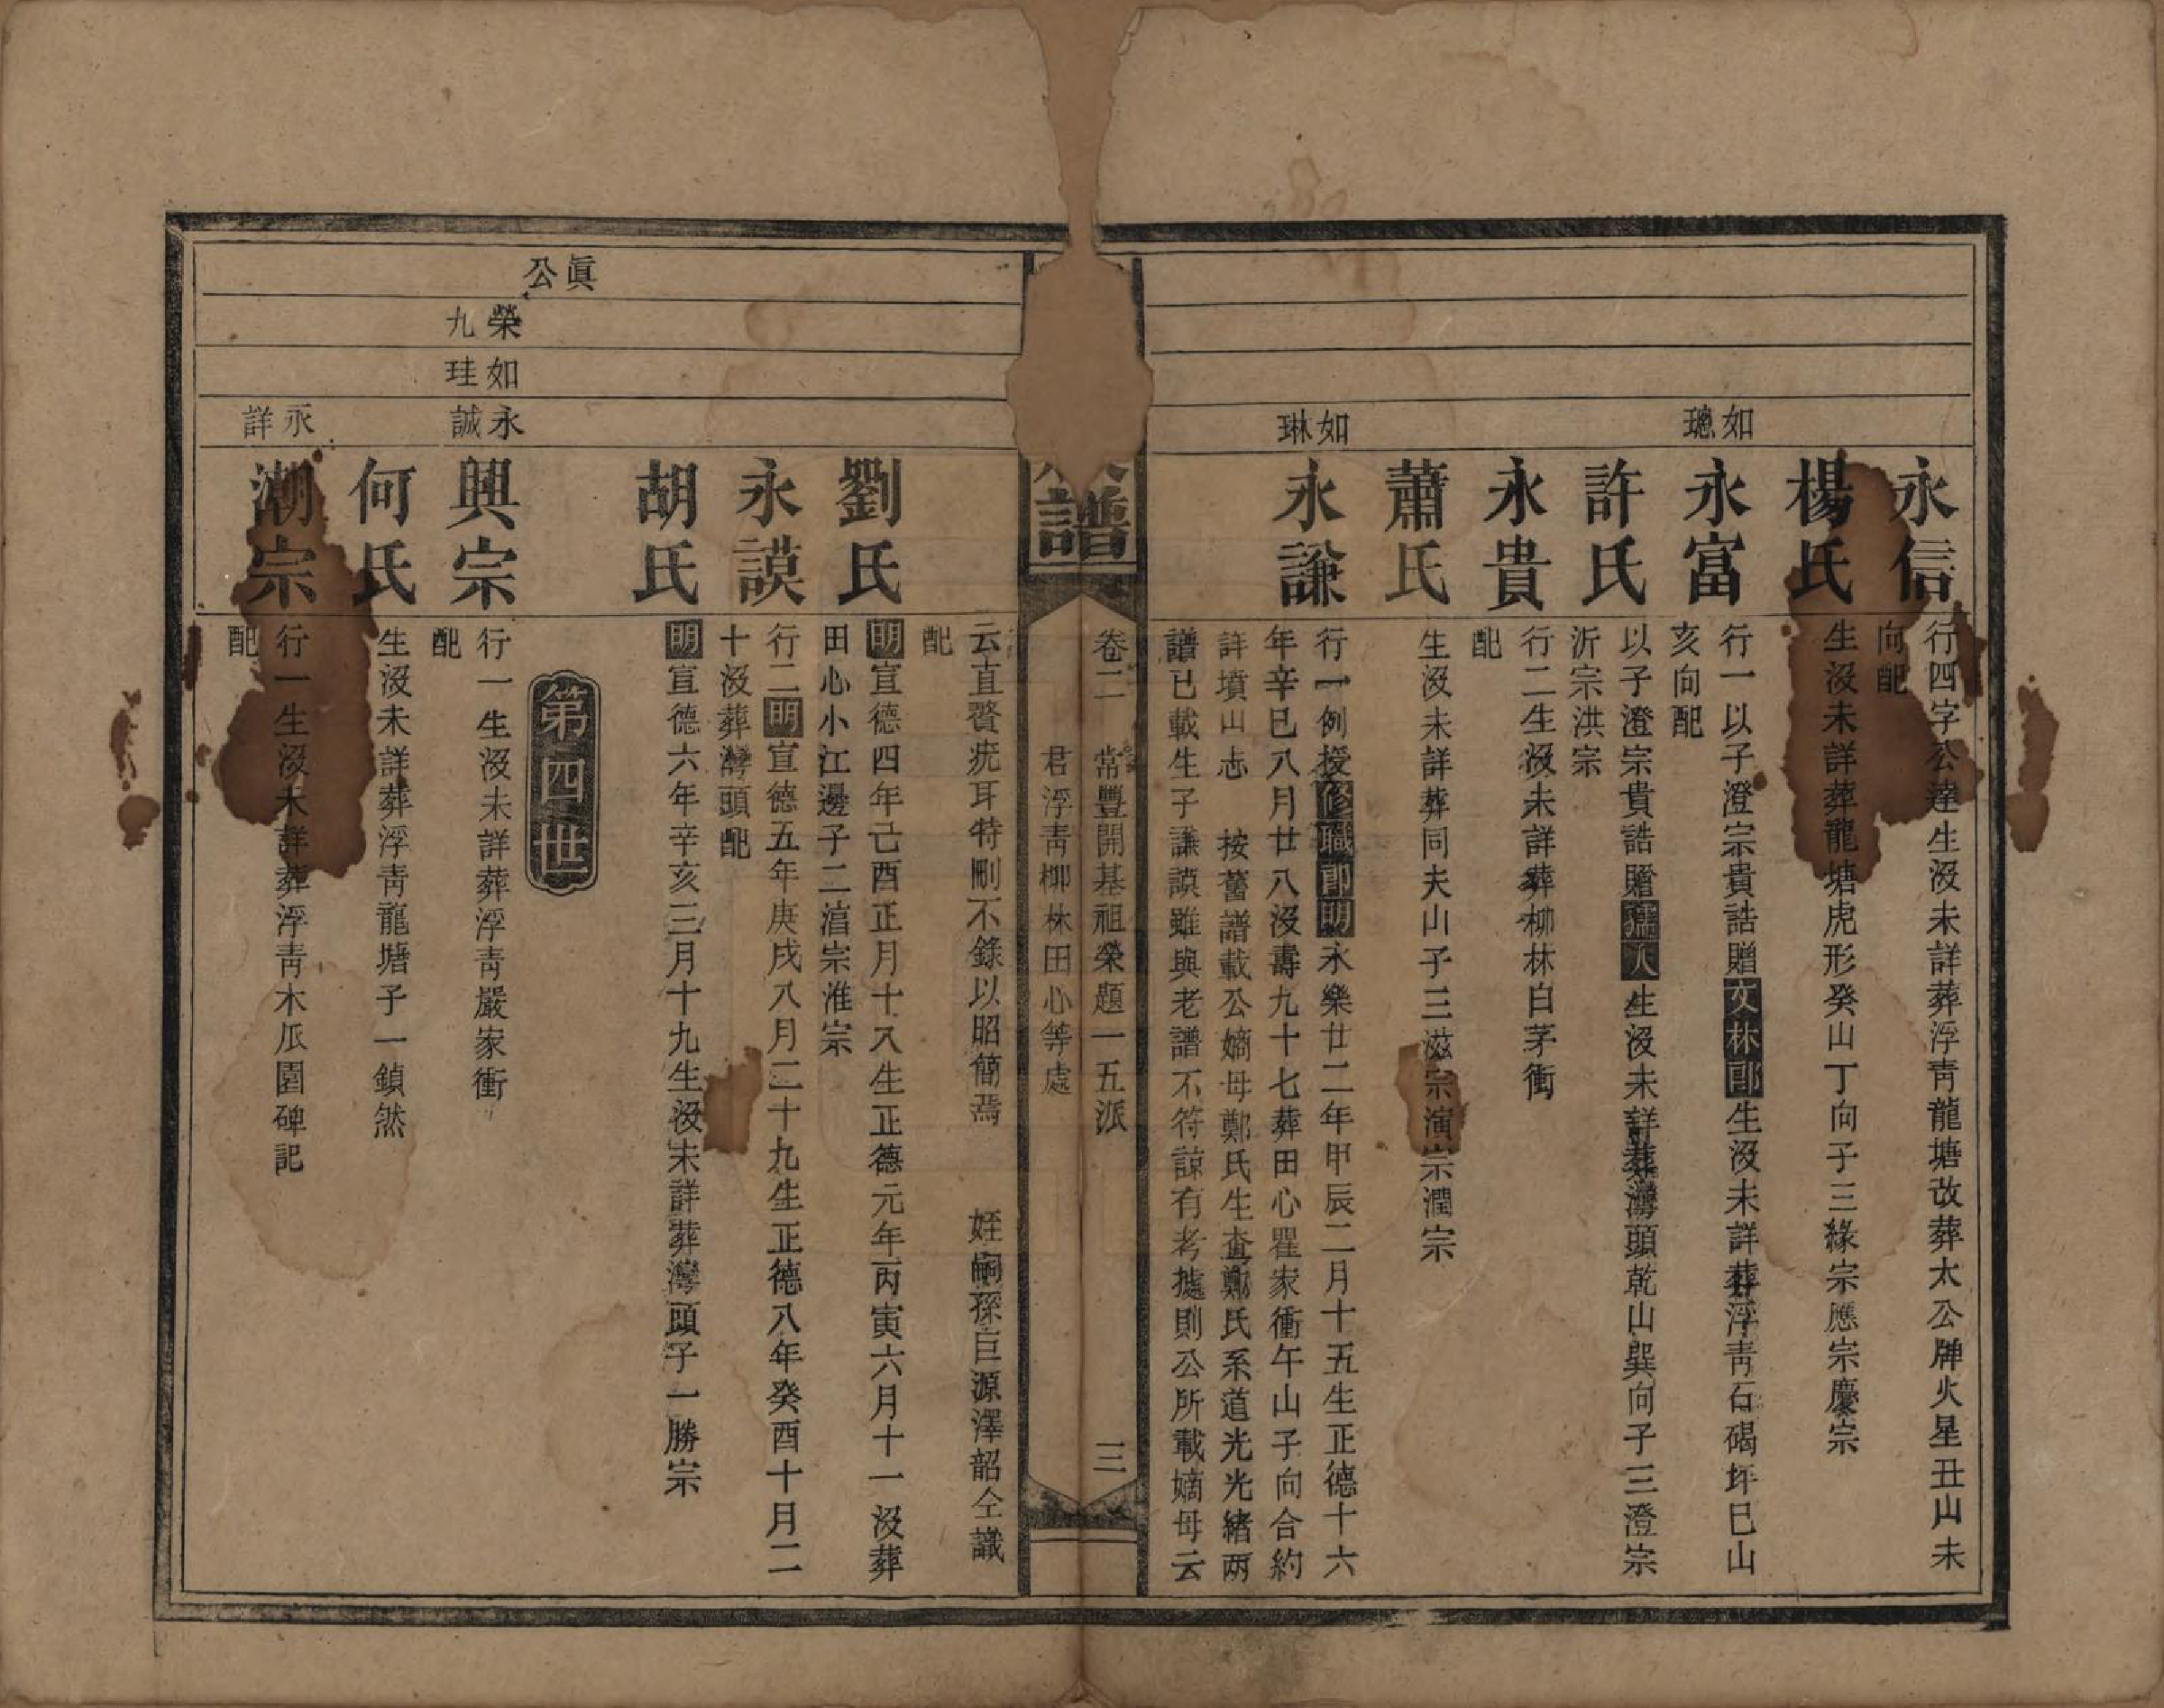 永信
行四字公達生沒未詳葬浮靑龍塘改葬太公牌火星丑山未
向配
楊氏
生沒未詳葬龍塘虎形癸山丁向子三緣宗應宗慶宗
如璁
永富
行一以子澄宗貴誥贈文林郎生沒未詳葬浮靑石碣坪巳山
亥向配
許氏
以子澄宗貴誥贈孺人生沒未詳葬灣頭乾山巽向子三澄宗
沂宗洪宗
永貴
行二生沒未詳葬柳林白茅衝
配
蕭氏
生沒未詳葬同夫山子三滋宗演宗潤宗
如琳
永謙
行一例授修職郎明永樂廿二年甲辰二月十五生正德十六
年辛巳八月廿八沒壽九十七葬田心瞿家衝午山子向合約
詳墳山志 按舊譜載公嫡母鄭氏生查鄭氏系道光光緒兩
譜已載生子謙謨雖與老譜不符諒有考據則公所載嫡母云
譜
卷二 常豐開基祖榮題一五派
君浮靑柳林田心等處
三
云直贅疣耳特刪不錄以昭簡焉 姪嗣孫巨源澤韶仝識
配
劉氏
明宣德四年己酉正月十八生正德元年丙寅六月十一沒葬
田心小江邊子二湻宗淮宗
永謨
行二明宣德五年庚戌八月二十九生正德八年癸酉十月二
十沒葬灣頭配
胡氏
明宣德六年辛亥三月十九生沒未詳葬灣頭子一勝宗
第四世
眞公
榮九
如珪
永誠
興宗
行一生沒未詳葬浮靑嚴家衝
配
何氏
生沒未詳葬浮靑龍塘子一鎮然
永詳
潮宗
行一生沒未詳葬浮靑木瓜園碑記
配